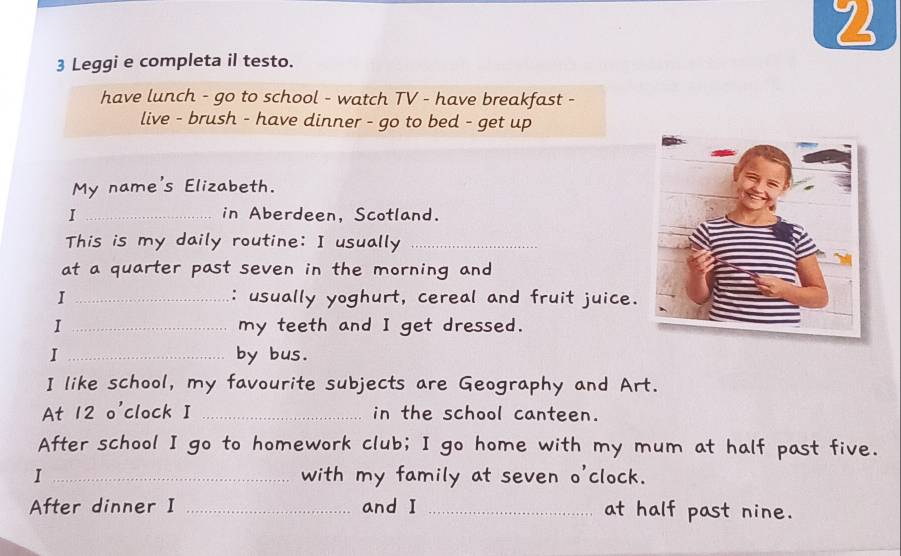 2
3 Leggi e completa il testo.
have lunch - go to school - watch TV - have breakfast -
live - brush - have dinner - go to bed - get up
My name's Elizabeth.
I ........................ in Aberdeen, Scotland.
This is my daily routine: I usually ........................
at a quarter past seven in the morning and
I ............................: usually yoghurt, cereal and fruit juice.
I ............................ my teeth and I get dressed.
I ............................ by bus.
I like school, my favourite subjects are Geography and Art.
At 12 o'clock I ............................ in the school canteen.
After school I go to homework club; I go home with my mum at half past five.
I ........................................ with my family at seven o'clock.
After dinner I ............................ and I ............................ at half past nine.